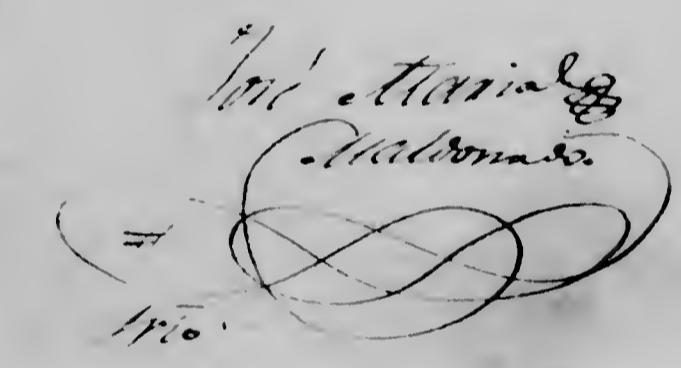 José Maria
Maldonado.
Srio.